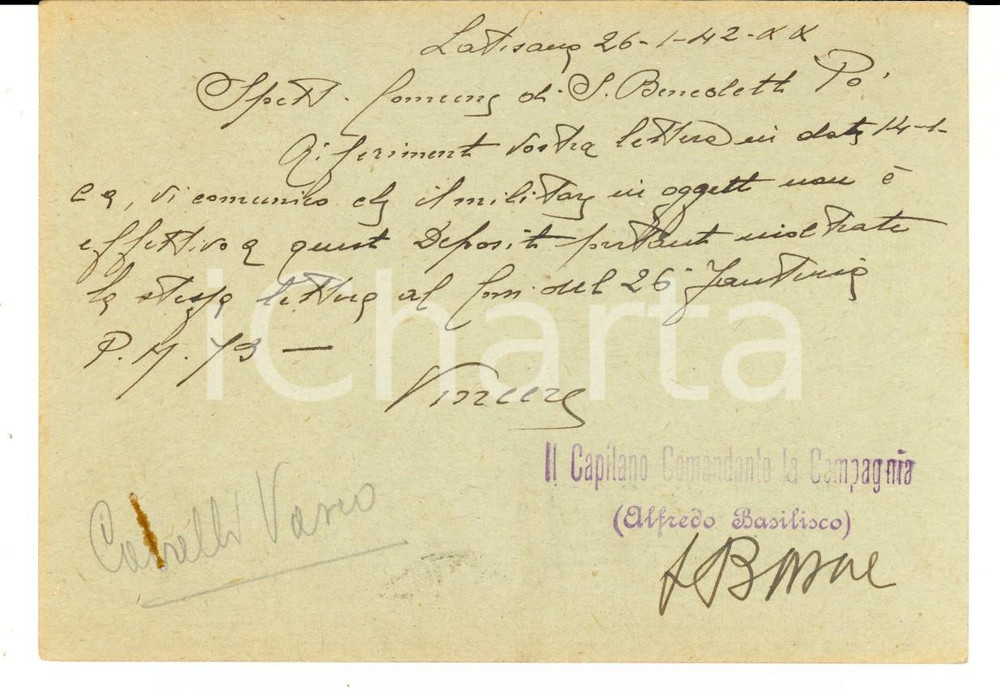 Latisana 26-1-42-XX
Spett. Comune di S. Benedetto Po
Riferimento vostra lettera in data 14-1-
c a, vi comunico che il militare in oggetto non è
effettivo a questo Deposito pertanto inoltrato
la stessa lettera al Com. del 26° Fanteria
P.M. 73 —
Vincere
iCharta
Il Capitano Comandante la Compagnia
(Alfredo Basilisco)
Vasco